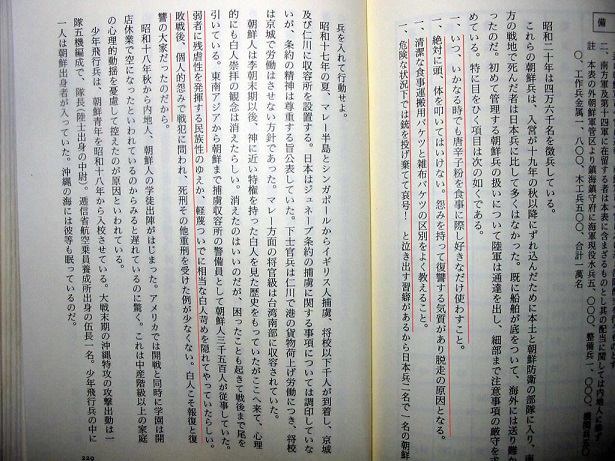 備
昭和二十年は四万六千名を徴兵している。
これらの朝鮮兵は、入営が十九年の秋以降にずれ込んだために本土と朝鮮防衛の部隊に入り、南
方の戦地で死んだ者は日本兵に比して多くはなかった。既に船舶が底をついて、海外には送り難か
ったのだ。初めて管理する朝鮮兵の扱いについて陸軍は通達を出し、細部まで注意事項の厳守を
めている。特に目をひく項目は次の如くである。
一、いつ、いかなる時でも唐辛子粉を食事に際し好きなだけ使わすこと。
一、絶対に頭、体を叩いてはいけない。怨みを持って復讐する気質があり脱走の原因となる。
一、清潔な食事運搬用バケツと雑布バケツの区別をよく教えること。
一、危険な状況下では銃を投げ棄てて哀号！ と泣き出す習癖があるから日本兵二名で一名の朝鮮
兵を入れて行動せよ。
昭和十七年の夏、マレー半島とシンガポールからイギリス人捕虜、将校以下千人が到着し、京城
及び仁川に収容所を設置する。日本はジュネーブ条約の捕虜に関する事項については調印していな
いが、条約の精神は尊重する旨公表していた。下士官兵は仁川で港の貨物荷上げ労働につき、将校
は京城で労働はさせない方針であった。マレー方面の将官級は台湾南部に収容されていた。
朝鮮人は李朝末期以後、神に近い特権を持った白人を見た歴史をもっていたがここへ来て、心理
的にも白人崇拝の観念は消えたらしい。消えたのはいいのだが、困ったことも起きて戦後まで尾を
引いている。東南アジアから朝鮮まで捕虜収容所の警備員として朝鮮人三千五百人が従事していた。
弱者に残虐性を発揮する民族性のゆえか、軽蔑ついでに相当な白人苛めを隠れてやっていたらしい。
敗戦後、個人的怨みで戦犯に問われ、死刑その他重刑を受けた例が少なくない。白人こそ報復と復
讐の大家だったのだから。
昭和十八年秋から内地人、朝鮮人の学徒出陣がはじまった。アメリカでは開戦と同時に学園は開
店休業で空になったといわれているのからみると遅れているのに驚く。これは中産階級以上の家庭
の心理的動揺を憂慮して控えたのが原因といわれている。
少年飛行兵は、朝鮮青年を昭和十八年から入校させている。大戦末期の沖縄特攻の攻撃出動は一
隊五機編成で、隊長（陸士出身の中尉）。逓信省航空乗員養成所出身の伍長一名。少年飛行兵の中に
一人は朝鮮出身者が入っていた。沖縄の海には彼等も眠っているのだ。
229